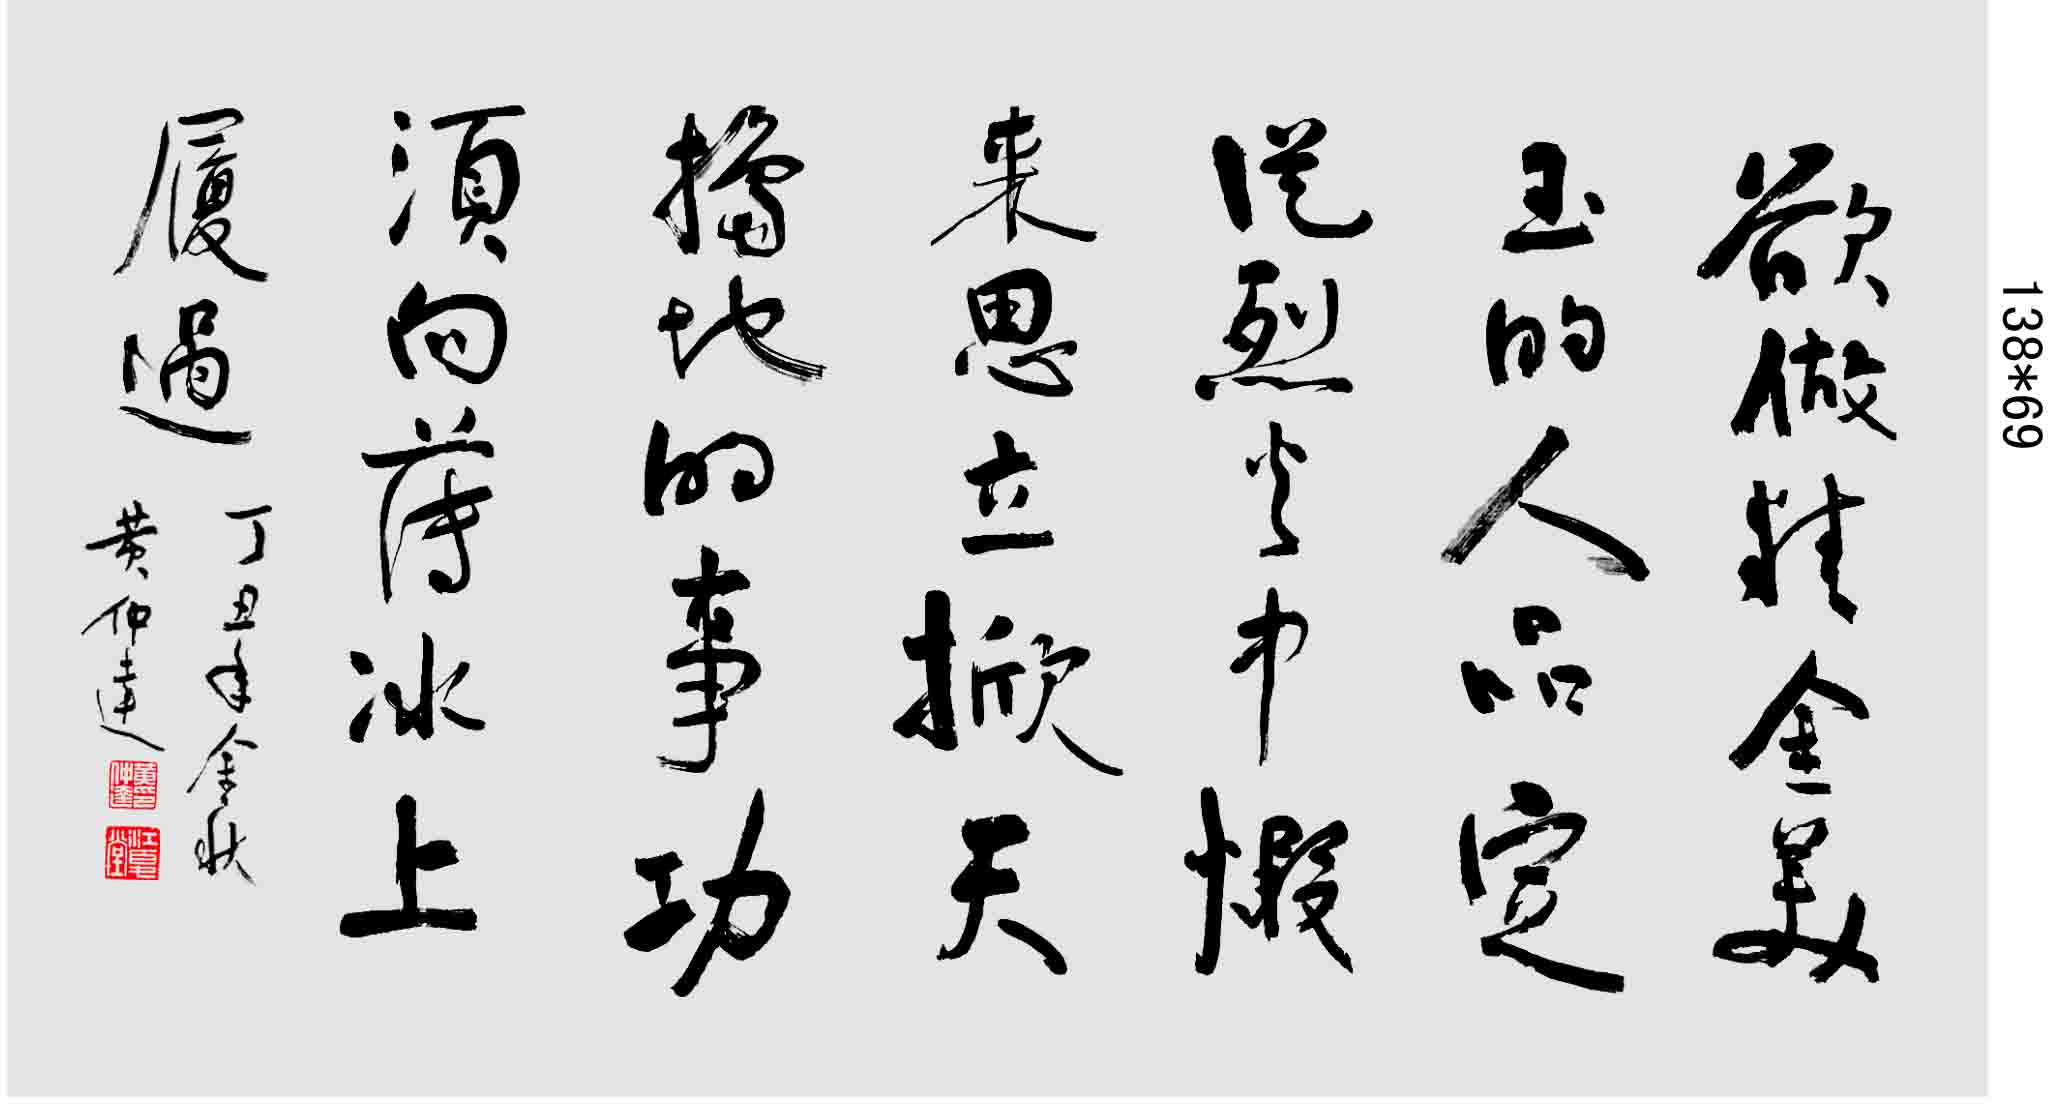 欲做精金美
玉的人品定
從烈火中煅
来思立掀天
揭地的事功
須向薄冰上
履過
丁丑年金秋
黄仲達
黄印仲達
江夏堂
138*69